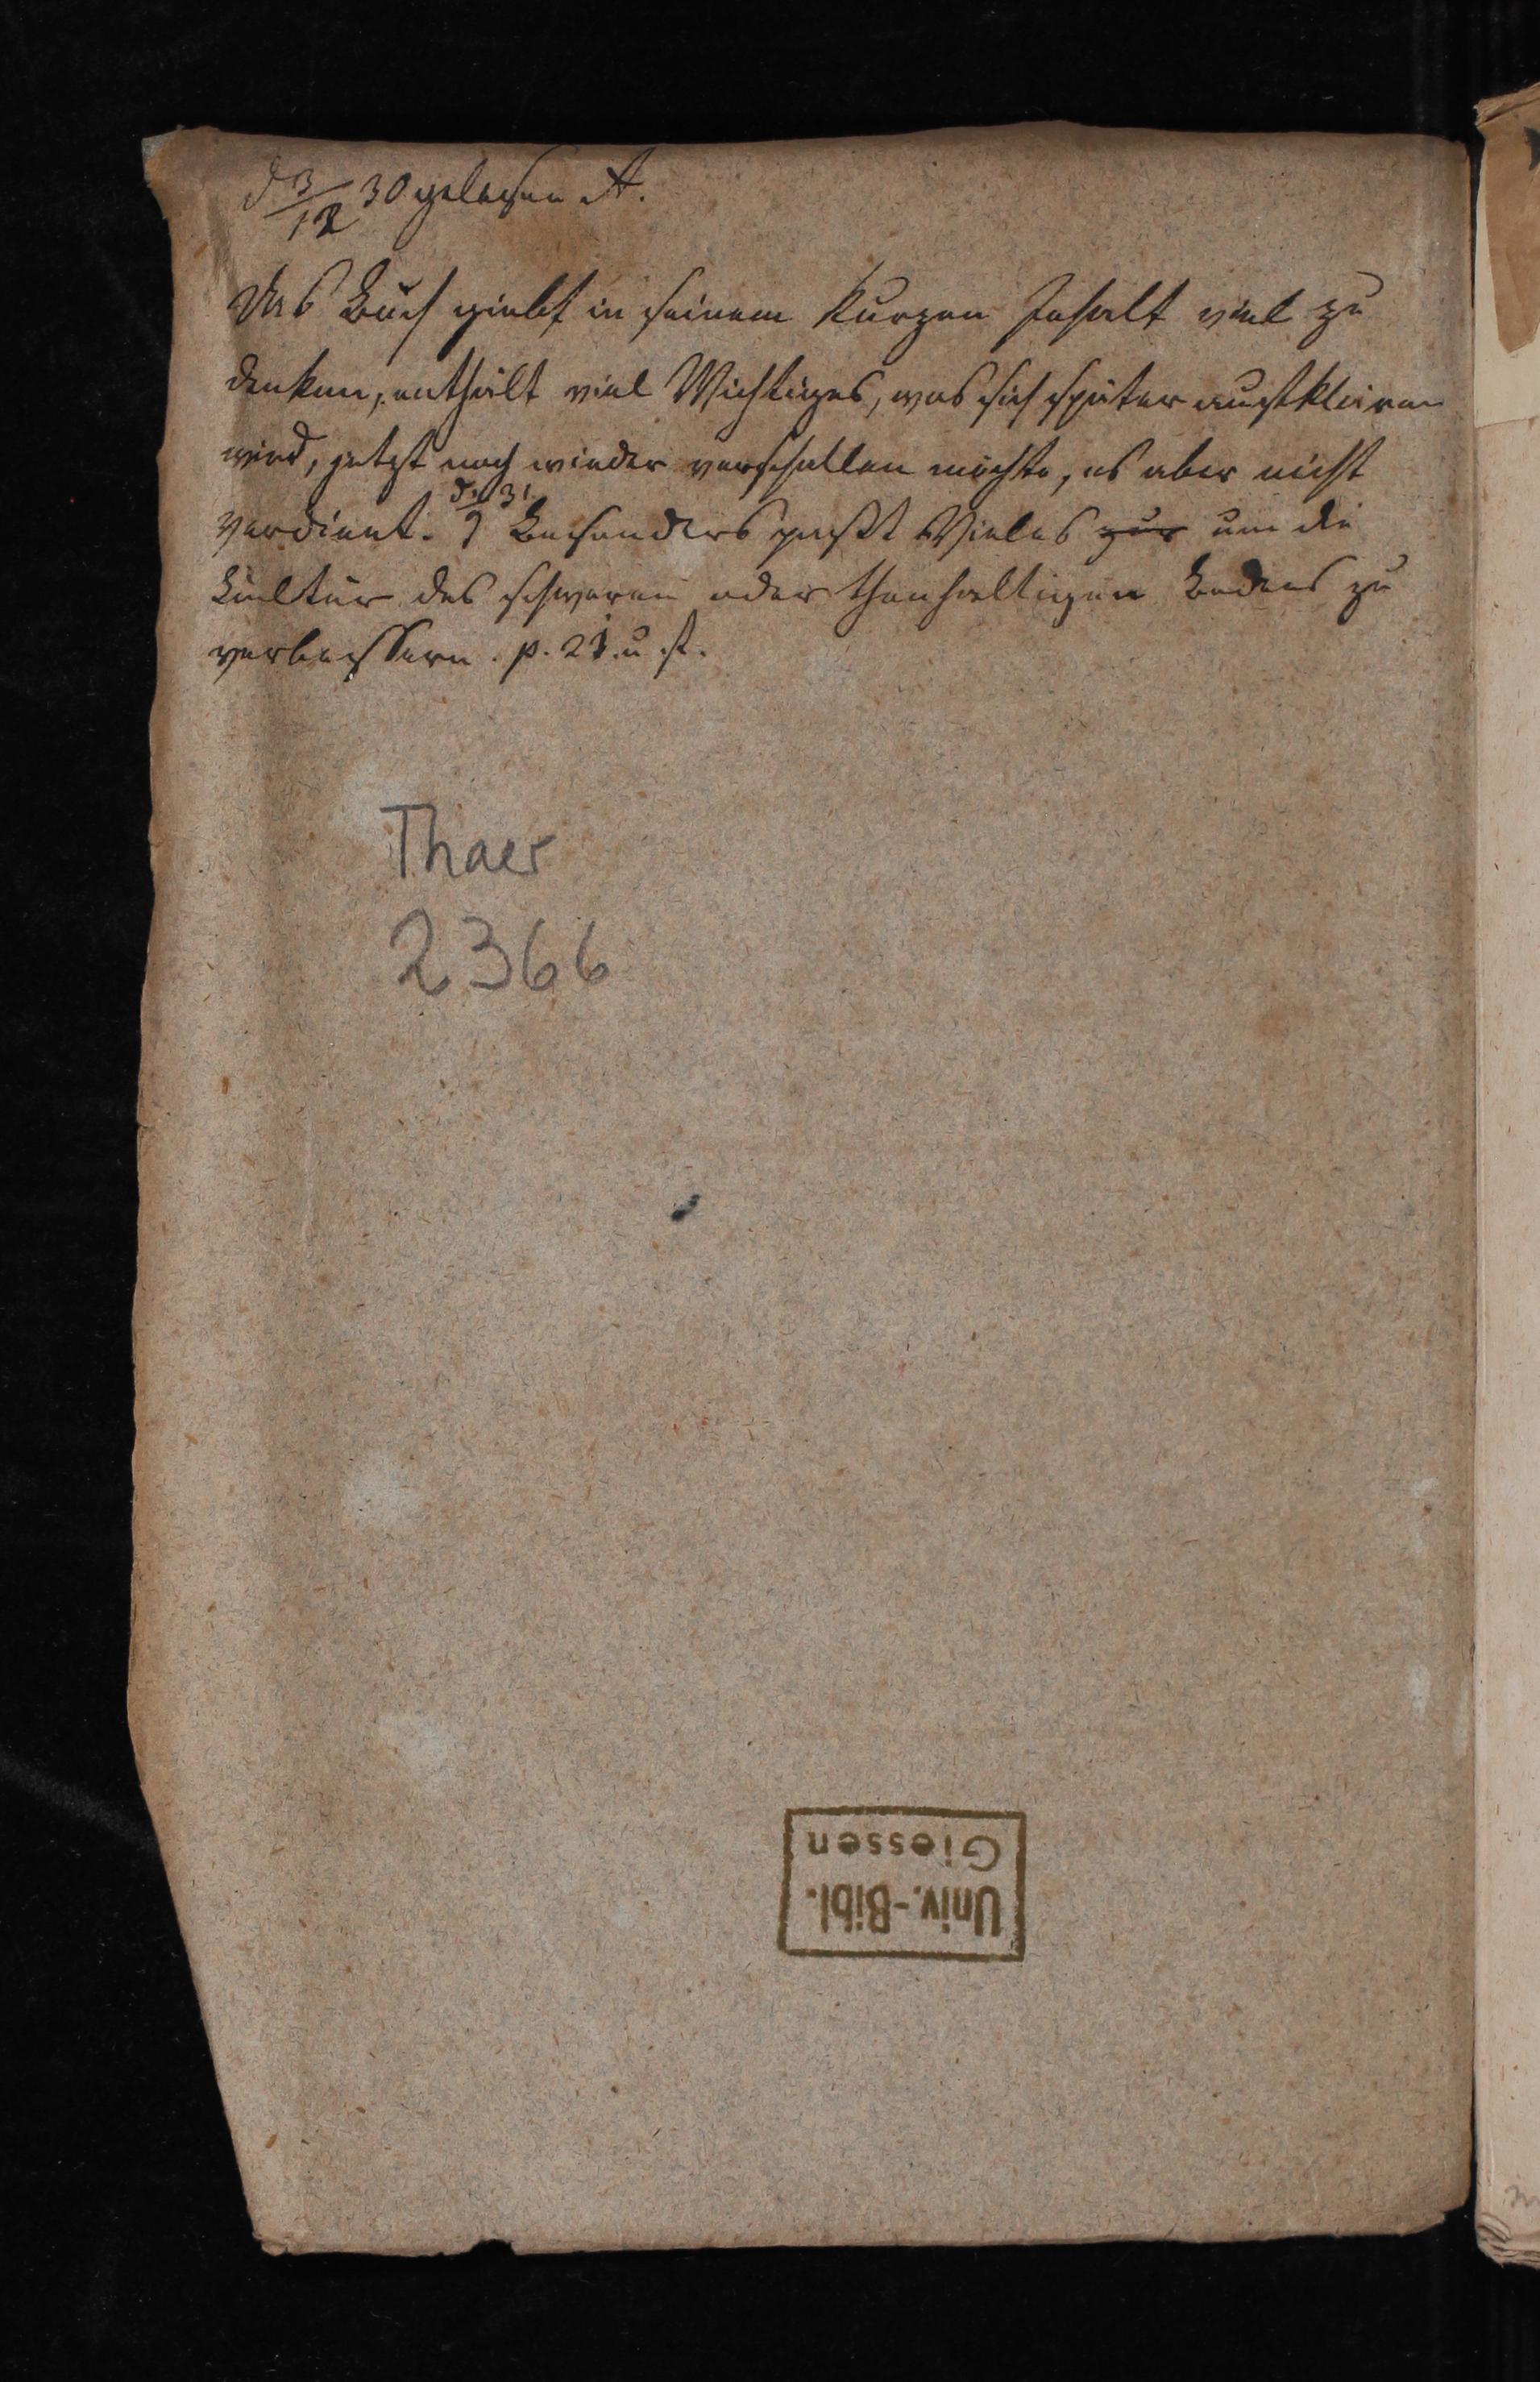 d 3/12 30 gelesen A.
Das Buch giebt in seinem kurzen Inhalt viel zu
denken, enthält viel Wichtiges, was sich später aufklären
wird, jetzt noch wieder verschallen möchte, es aber nicht
verdient. Besonders paßt Vieles zur um die
Cultur des schweren oder thonhaltigen Bodens zu
verbessern. p. 21. u. f.
Thaer
2366
Univ.-Bibl.
Giessen